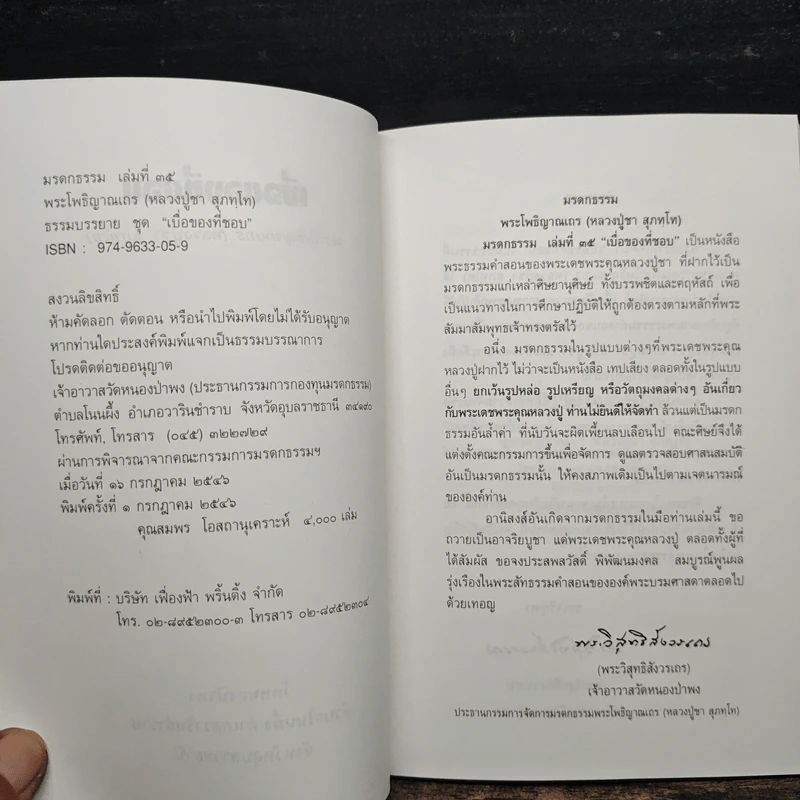 มรดกธรรม เล่มที่ ๓๕
พระโพธิญาณเถร (หลวงปู่ชา สุภทฺโท)
ธรรมบรรยาย ชุด "เบื่อของที่ชอบ"
ISBN : 974-9633-05-9
สงวนลิขสิทธิ์
ห้ามคัดลอก ตัดตอน หรือนำไปพิมพ์โดยไม่ได้รับอนุญาต
หากท่านใดประสงค์พิมพ์แจกเป็นธรรมบรรณาการ
โปรดติดต่อขออนุญาต
เจ้าอาวาสวัดหนองป่าพง (ประธานกรรมการกองทุนมรดกธรรม)
ตำบลโนนผึ้ง อำเภอวารินชำราบ จังหวัดอุบลราชธานี ๓๔๑๙๐
โทรศัพท์, โทรสาร (๐๔๕) ๓๒๒๗๒๙
ผ่านการพิจารณาจากคณะกรรมการมรดกธรรมฯ
เมื่อวันที่ ๑๖ กรกฎาคม ๒๕๔๖
พิมพ์ครั้งที่ ๑ กรกฎาคม ๒๕๔๖
คุณสมพร โอสถานุเคราะห์ ๔,๐๐๐ เล่ม
พิมพ์ที่ : บริษัท เฟื่องฟ้า พริ้นติ้ง จำกัด
โทร. ๐๒-๘๙๕๒๓๐๐-๓ โทรสาร ๐๒-๘๙๕๒๓๐๔
มรดกธรรม
พระโพธิญาณเถร (หลวงปู่ชา สุภทฺโท)
มรดกธรรม เล่มที่ ๓๕ "เบื่อของที่ชอบ" เป็นหนังสือ
พระธรรมคำสอนของพระเดชพระคุณหลวงปู่ชา ที่ฝากไว้เป็น
มรดกแก่เหล่าศิษยานุศิษย์ ทั้งบรรพชิตและคฤหัสถ์ เพื่อ
เป็นแนวทางในการศึกษาปฏิบัติให้ถูกต้องตรงตามหลักที่พระ
สัมมาสัมพุทธเจ้าทรงตรัสไว้
อนึ่ง มรดกธรรมในรูปแบบต่างๆที่พระเดชพระคุณ
หลวงปู่ฝากไว้ ไม่ว่าจะเป็นหนังสือ เทปเสียง ตลอดทั้งในรูปแบบ
อื่นๆ ยกเว้นรูปหล่อ รูปเหรียญ หรือวัตถุมงคลต่างๆ อันเกี่ยว
กับพระเดชพระคุณหลวงปู่ ท่านไม่ยินดีให้จัดทำ ล้วนแต่เป็นมรดก
ธรรมอันล้ำค่า ที่นับวันจะผิดเพี้ยนลบเลือนไป คณะศิษย์จึงได้
แต่งตั้งคณะกรรมการขึ้นเพื่อจัดการ ดูแลตรวจสอบศาสนสมบัติ
อันเป็นมรดกธรรมนั้น ให้คงสภาพเดิมเป็นไปตามเจตนารมณ์
ขององค์ท่าน
อานิสงส์อันเกิดจากมรดกธรรมในมือท่านเล่มนี้ ขอ
ถวายเป็นอาจริยบูชา แด่พระเดชพระคุณหลวงปู่ ตลอดทั้งผู้ที่
ได้สัมผัส ขอจงประสพสวัสดิ์ พิพัฒนมงคล สมบูรณ์พูนผล
รุ่งเรืองในพระสัทธรรมคำสอนขององค์พระบรมศาสดาตลอดไป
ด้วยเทอญ
พระวิสุทธิสังวรเถร
(พระวิสุทธิสังวรเถร)
เจ้าอาวาสวัดหนองป่าพง
ประธานกรรมการจัดการมรดกธรรมพระโพธิญาณเถร (หลวงปู่ชา สุภทฺโท)